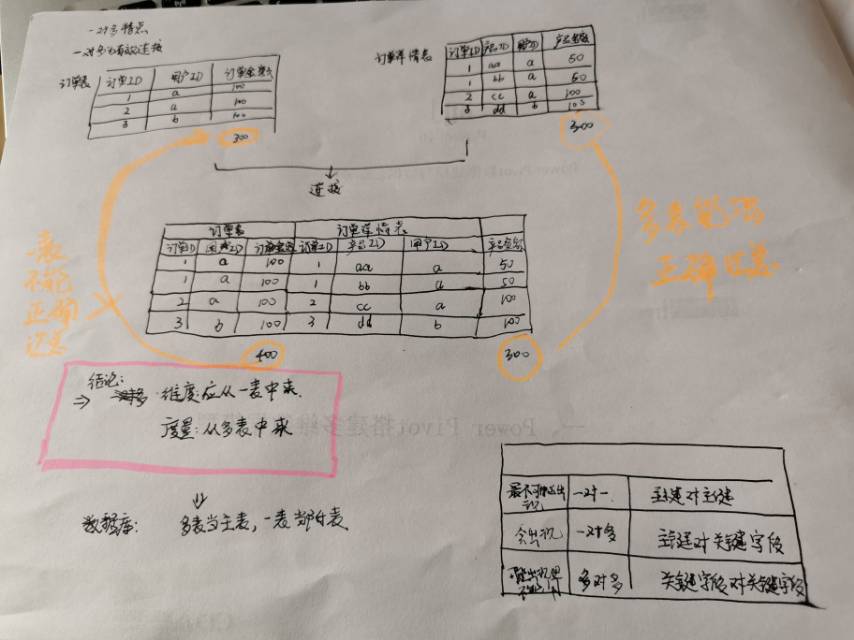 一对多特点
一对多的有效连接
订单表
订单ID 用户ID 订单金额
1 a 100
2 a 100
3 b 100
300
订单详情表
订单ID 产品ID 用户ID 产品金额
1 aa a 50
1 bb a 50
2 cc a 100
3 dd b 100
300
连接
订单表 订单详情表
订单ID 用户ID 订单金额 订单ID 产品ID 用户ID 产品金额
1 a 100 1 aa a 50
1 a 100 1 bb a 50
2 a 100 2 cc a 100
3 b 100 3 dd b 100
400 300
一表
不能
正确
汇总
多表能够
正确汇总
结论:
⇒ 维度:应从一表中来.
度量:从多表中来
数据库: 多表当主表,一表当附表
最不可能出现 一对一 主键对主键
会出现 一对多 主键对关键字段
多对多 关键字段对关键字段
一、Power Pivot搭建多维